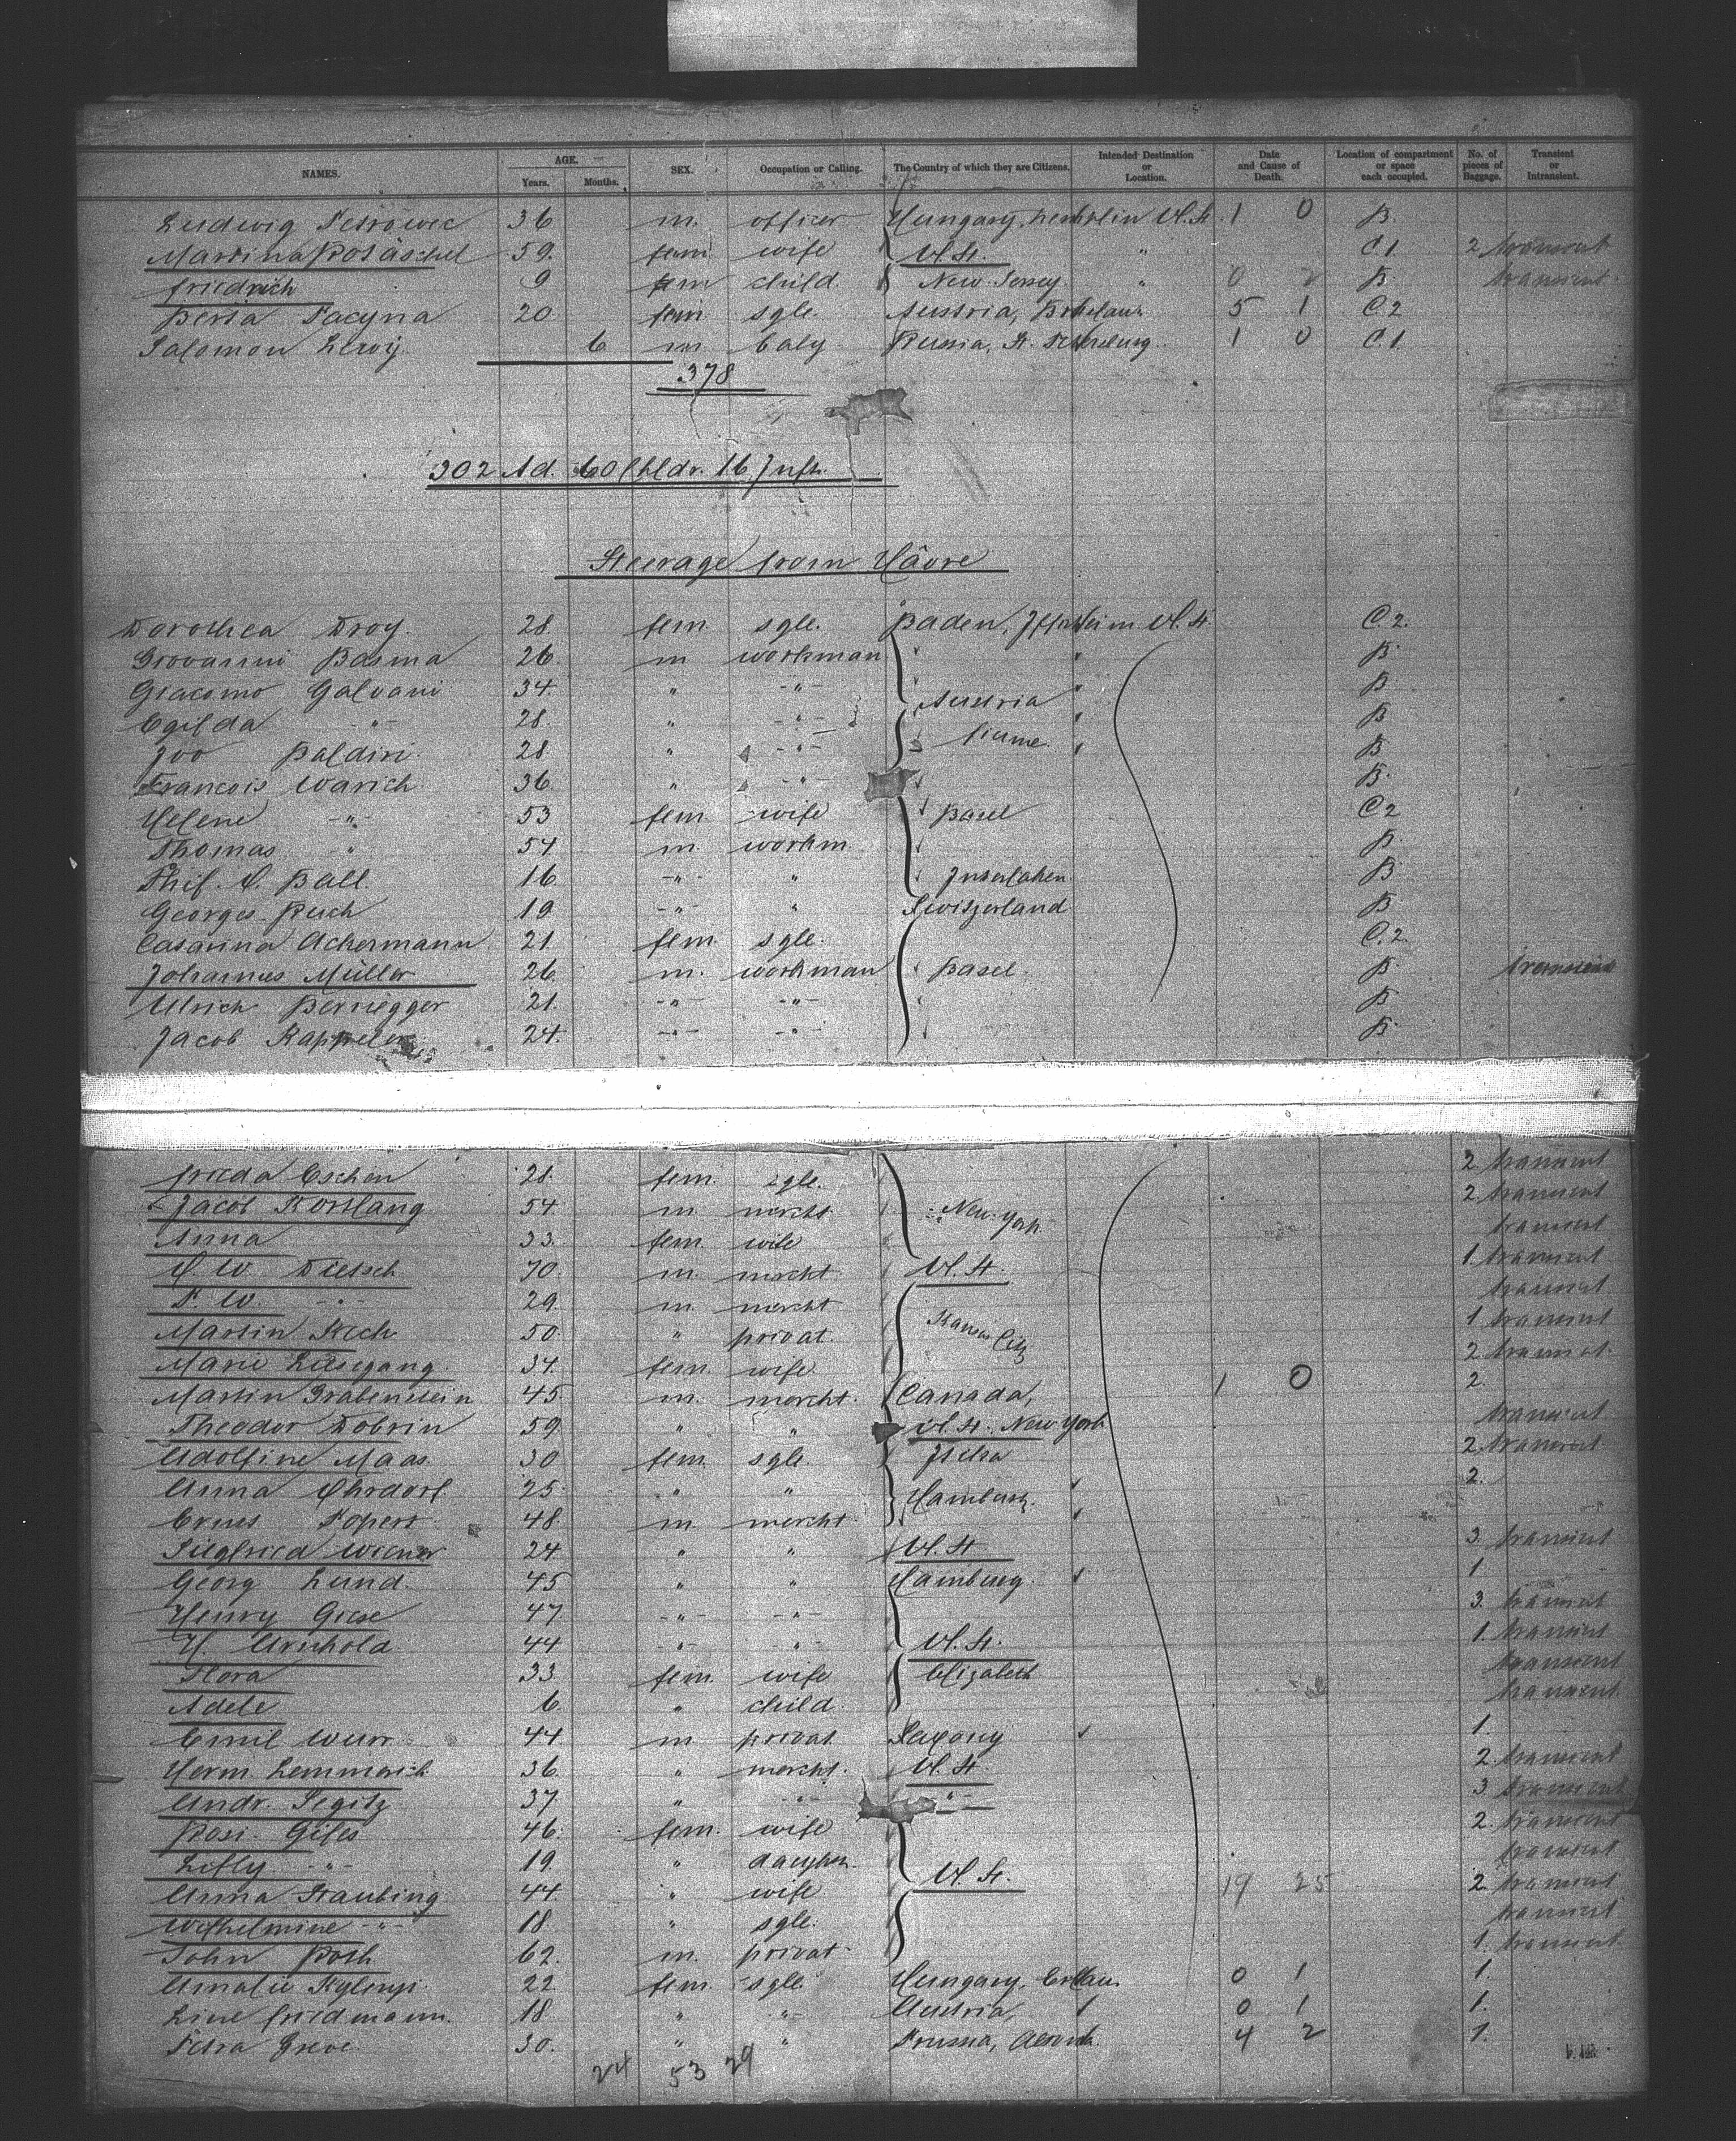 NAMES. AGE. Years. Months. SEX. Occupation or Calling. The Country of which they are Citizens. Intended Destination or Location. Date and Cause of Death. Location of compartment or space each occupied. No. of pieces of Baggage. Transient or Intransient.
Ludwig 36 m. officer Hungary, U. St. 1 0 B
Martina 59. fem wife U. St. " C.1 2 transient
Friedrich 9 fem child New Jersey " 0 2 B transient
Berta Pacyna 20 fem sgle. Austria, 5 1 C2
Salomon 6 m baby Russia, St. 1 0 C.1.
378
302 Ad. 60 Chldr. 16 Inft.
Steerage from Hâvre
Dorothea Droy. 28. fem. sgle. Baden, U. St. C.2.
Giovanni Basma 26. m workman " " B
Giacomo Galvani 34. " -"- " Austria " B
Egilda -"- 28. " -"- " B
Ivo Baldini 28. " -"- Fiume. " B
Francois Warich 36. " -"- B.
Helene -"- 53 fem. wife Basel C2
Thomas -"- 54 m. workm. B.
Phil. C. Ball. 16 -"- " Interlaken B
Georges Reich 19 -"- " Switzerland B
Casarina Ackermann 21. fem. sgle. C.2.
Johannes Müller 26 m. workman Basel. B transient
Ulrich Bernegger 21. -"- -"- B
Jacob Kappeler 24. -"- -"- B
Frieda Eschen 28. fem. sgle. 2 transient
Jacob Kortlang 54 m. mercht New-York 2 transient
Anna 33. fem. wife transient
C. W. Dietsch 70. m. mercht U. St. 1. transient
F. W. -"- 29. m. mercht transient
Martin Kech 50. " privat. Kansas City 1 transient
Marie Liesegang 34. fem. wife 2 transient
Martin Grabenstein 45. m. mercht. Canada, 1 0 2.
Theodor Dobrin 59. " " U. St. New York transient
Adolfine Maas 30 fem. sgle. 2 transient
Anna Ohrdorf 25. " " Hamburg. 2.
Ernes Popert 48. m. mercht.
Siegfried Wiener 24 " " U. St. 3. transient
Georg Lund. 45 " " Hamburg. 1
Henry Giese 47. -"- -"- 3. transient
H. Arnhold 44 -"- -"- U. St. 1. transient
Flora 33. fem. wife Elizabeth transient
Adele 6 " child transient
Emil Wurr 44. m privat Saxony 1.
Herm. Lemmerich 36. " mercht. U. St. 2 transient
Andr. Segitz 37. " -"- -"- 3 transient
Rosi Giles 46. fem. wife 2. transient
Lilly -"- 19. " daughter. transient
Anna Straubing 44 " wife U. St. 19 25 2 transient
Wilhelmine -"- 18. " sgle. transient
John Roth 62. m. privat 1. transient
Amalie 22 fem. sgle. Hungary, Erlau. 0 1 1.
Line Friedmann. 18. " " Austria, 0 1 1.
Petra Greve. 30. " " Prussia, 4 2 1.
24 53 29